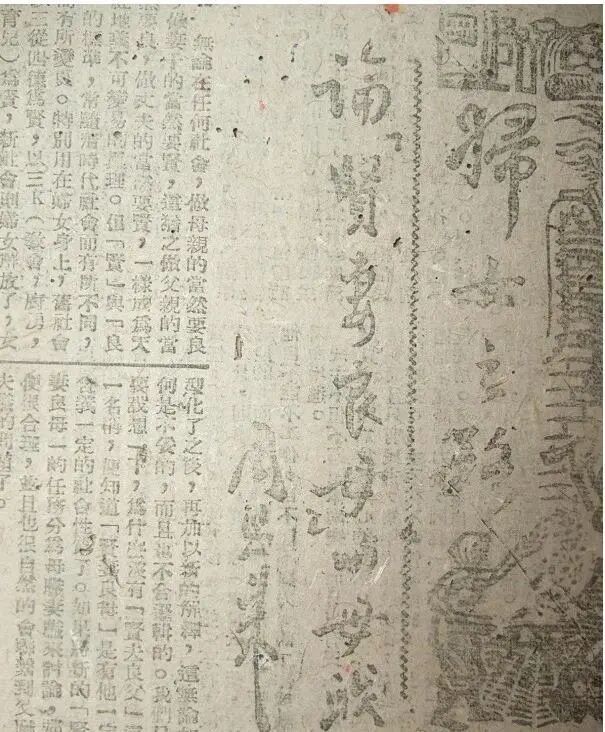 婦女之路
論「賢妻良母」與母職
周恩來
無論在任何社會，做母親的當然要良
，做妻子的當然要賢，這猶之做父親的當
然要良，做丈夫的當然要賢，一樣成為天
經地義不可變易的真理。但「賢」與「良
」的標準，常隨着時代社會而有所不同，
而有所變良。特別用在婦女身上，舊社會
以三從四德為賢，以三K（教會，廚房，
育兒）為賢，新社會則婦女解放了，女
型化了之後，再加以新的解釋，這無論
何是不妥的，而且也不合邏輯的。我們只
要設想一下，為什麼沒有「賢夫良父」
一名稱，便知道「賢妻良母」是有他一定
含義一定的社會性質了。如果將新的「賢
妻良母」的任務分為母職妻職來討論，那
便很合理，並且也很自然的會聯繫到父職
夫職的問題了。